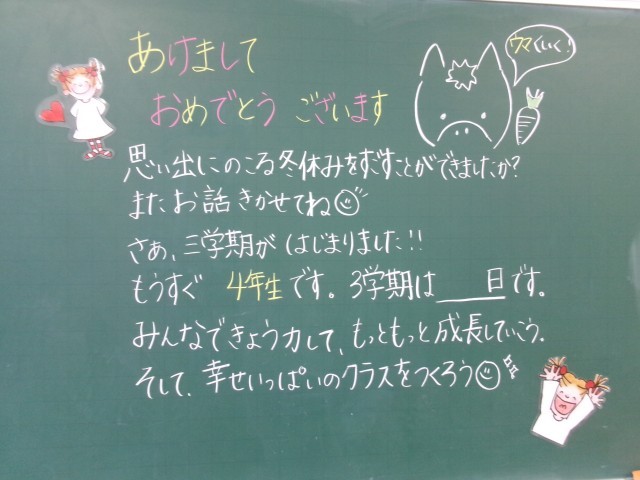 あけまして
おめでとう ございます
ウマくいく!
思い出にのこる冬休みをすごすことができましたか?
またお話きかせてね
さあ、三学期が はじまりました!!
もうすぐ 4年生です。3学期は___日です。
みんなできょう力して、もっともっと成長していこう.
そして、幸せいっぱいのクラスをつくろう